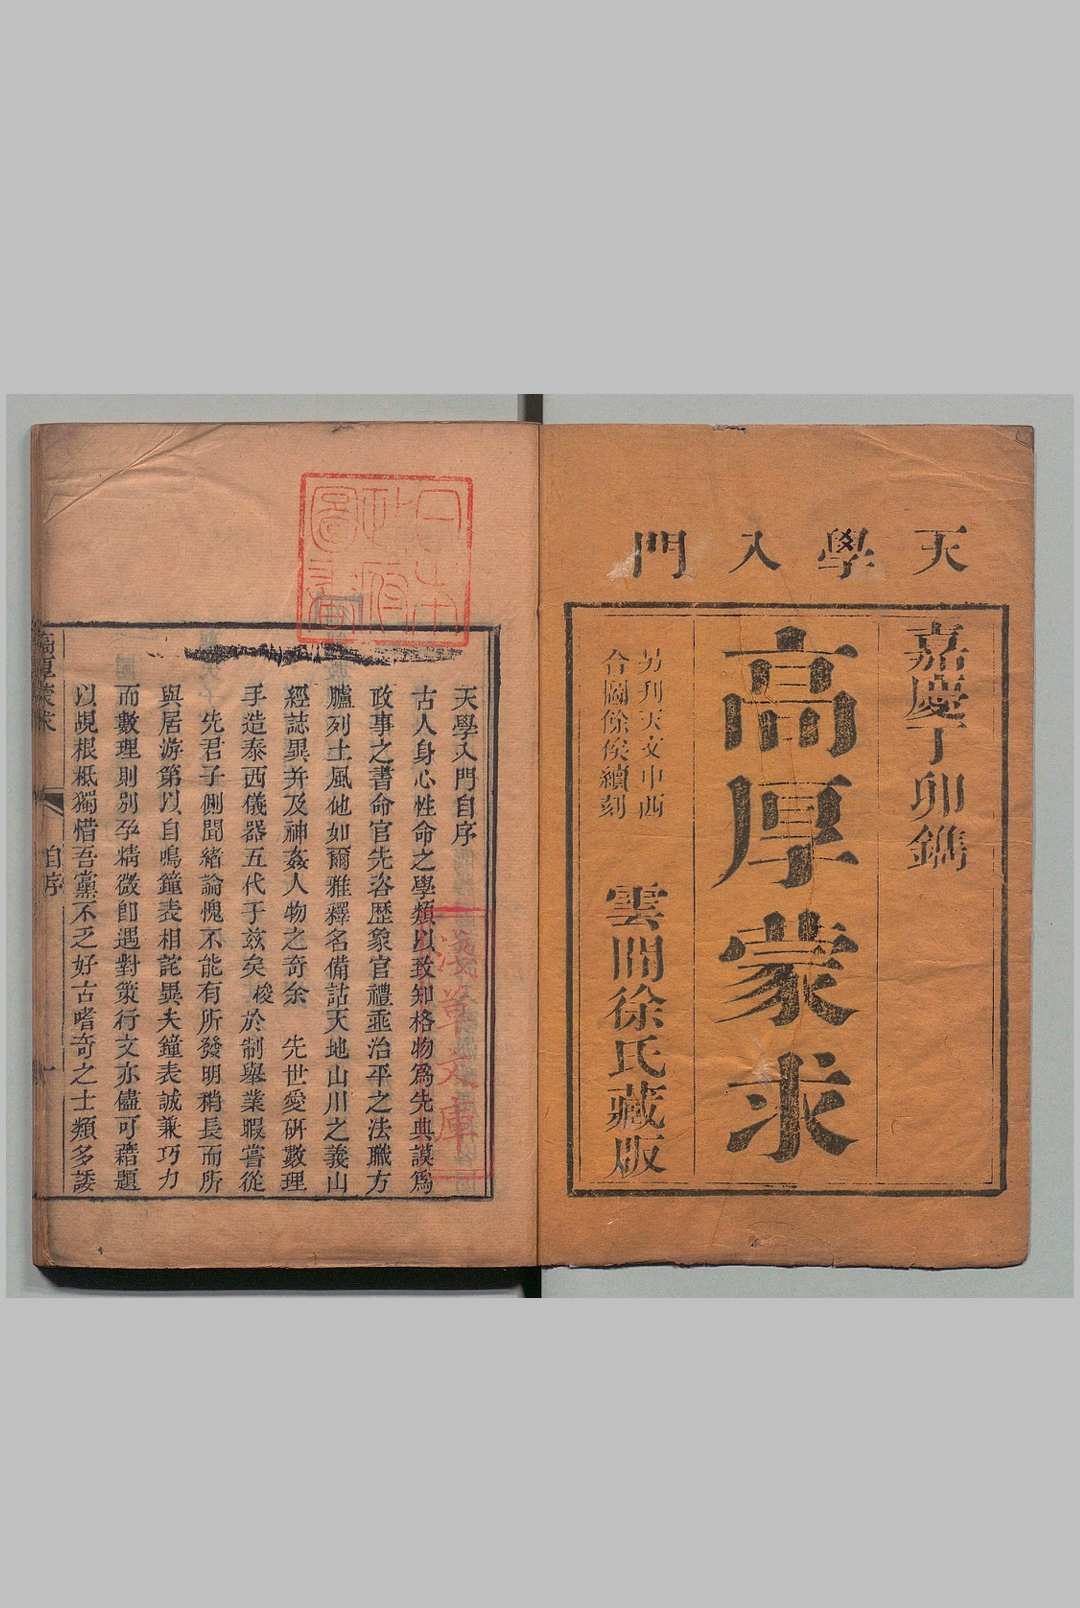 天學入門
嘉慶丁卯鐫
高厚蒙求
另刊天文中西
合圖餘俟續刻
雲間徐氏藏版
日本政府圖書
淺草文庫
天學入門自序
古人身心性命之學類以致知格物爲先典謨爲
政事之書命官先咨歴象官禮亟治平之法職方
臚列土風他如爾雅釋名備詁天地山川之義山
經誌異并及神姦人物之奇余 先世愛硏數理
手造泰西儀器五代于兹矣梭於制舉業暇嘗從
先君子側聞緒論愧不能有所發明稍長而所
與居游第以自鳴鐘表相詫異夫鐘表誠兼巧力
而數理則別孕精微卽遇對策行文亦儘可藉題
以覘根柢獨惜吾黨不乏好古嗜奇之士類多諉
高厚蒙求
自序
一